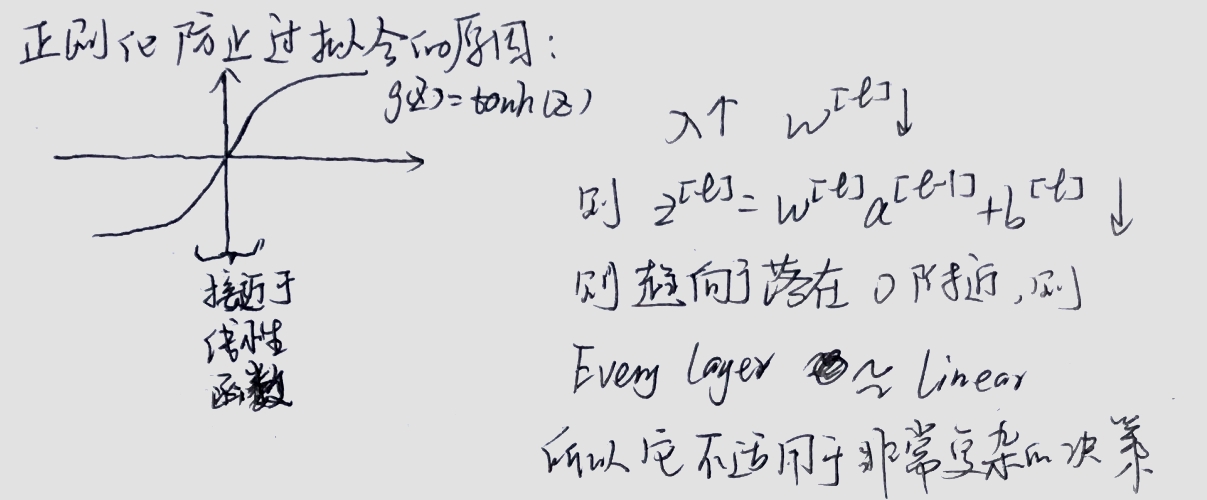 正则化防止过拟合的原因：
g(z)=tanh(z)
接近于
线性
函数
λ↑ w^[l]↓
则 z^[l]=w^[l]a^[l-1]+b^[l]↓
则趋向于落在0附近，则
Every layer ≈ linear
所以它不适用于非常复杂的决策